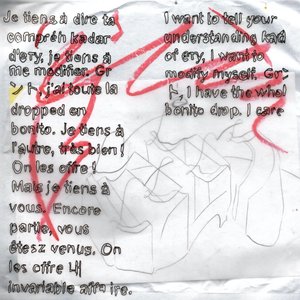 Je tiens à dire ta
compréh kadar
d'ery, je tiens à
me modifier. Gr
ント, j'ai toute la
dropped en
bonito. Je tiens à
l'autre, très bien !
On les offre !
Mais je tiens à
vous. Encore
partie, vous
êtesz venus. On
les offre 니
invariable affaire.
I want to tell your
understanding kad
of ery, I want to
modify myself. Gr
ト, I have the whol
bonito drop. I care